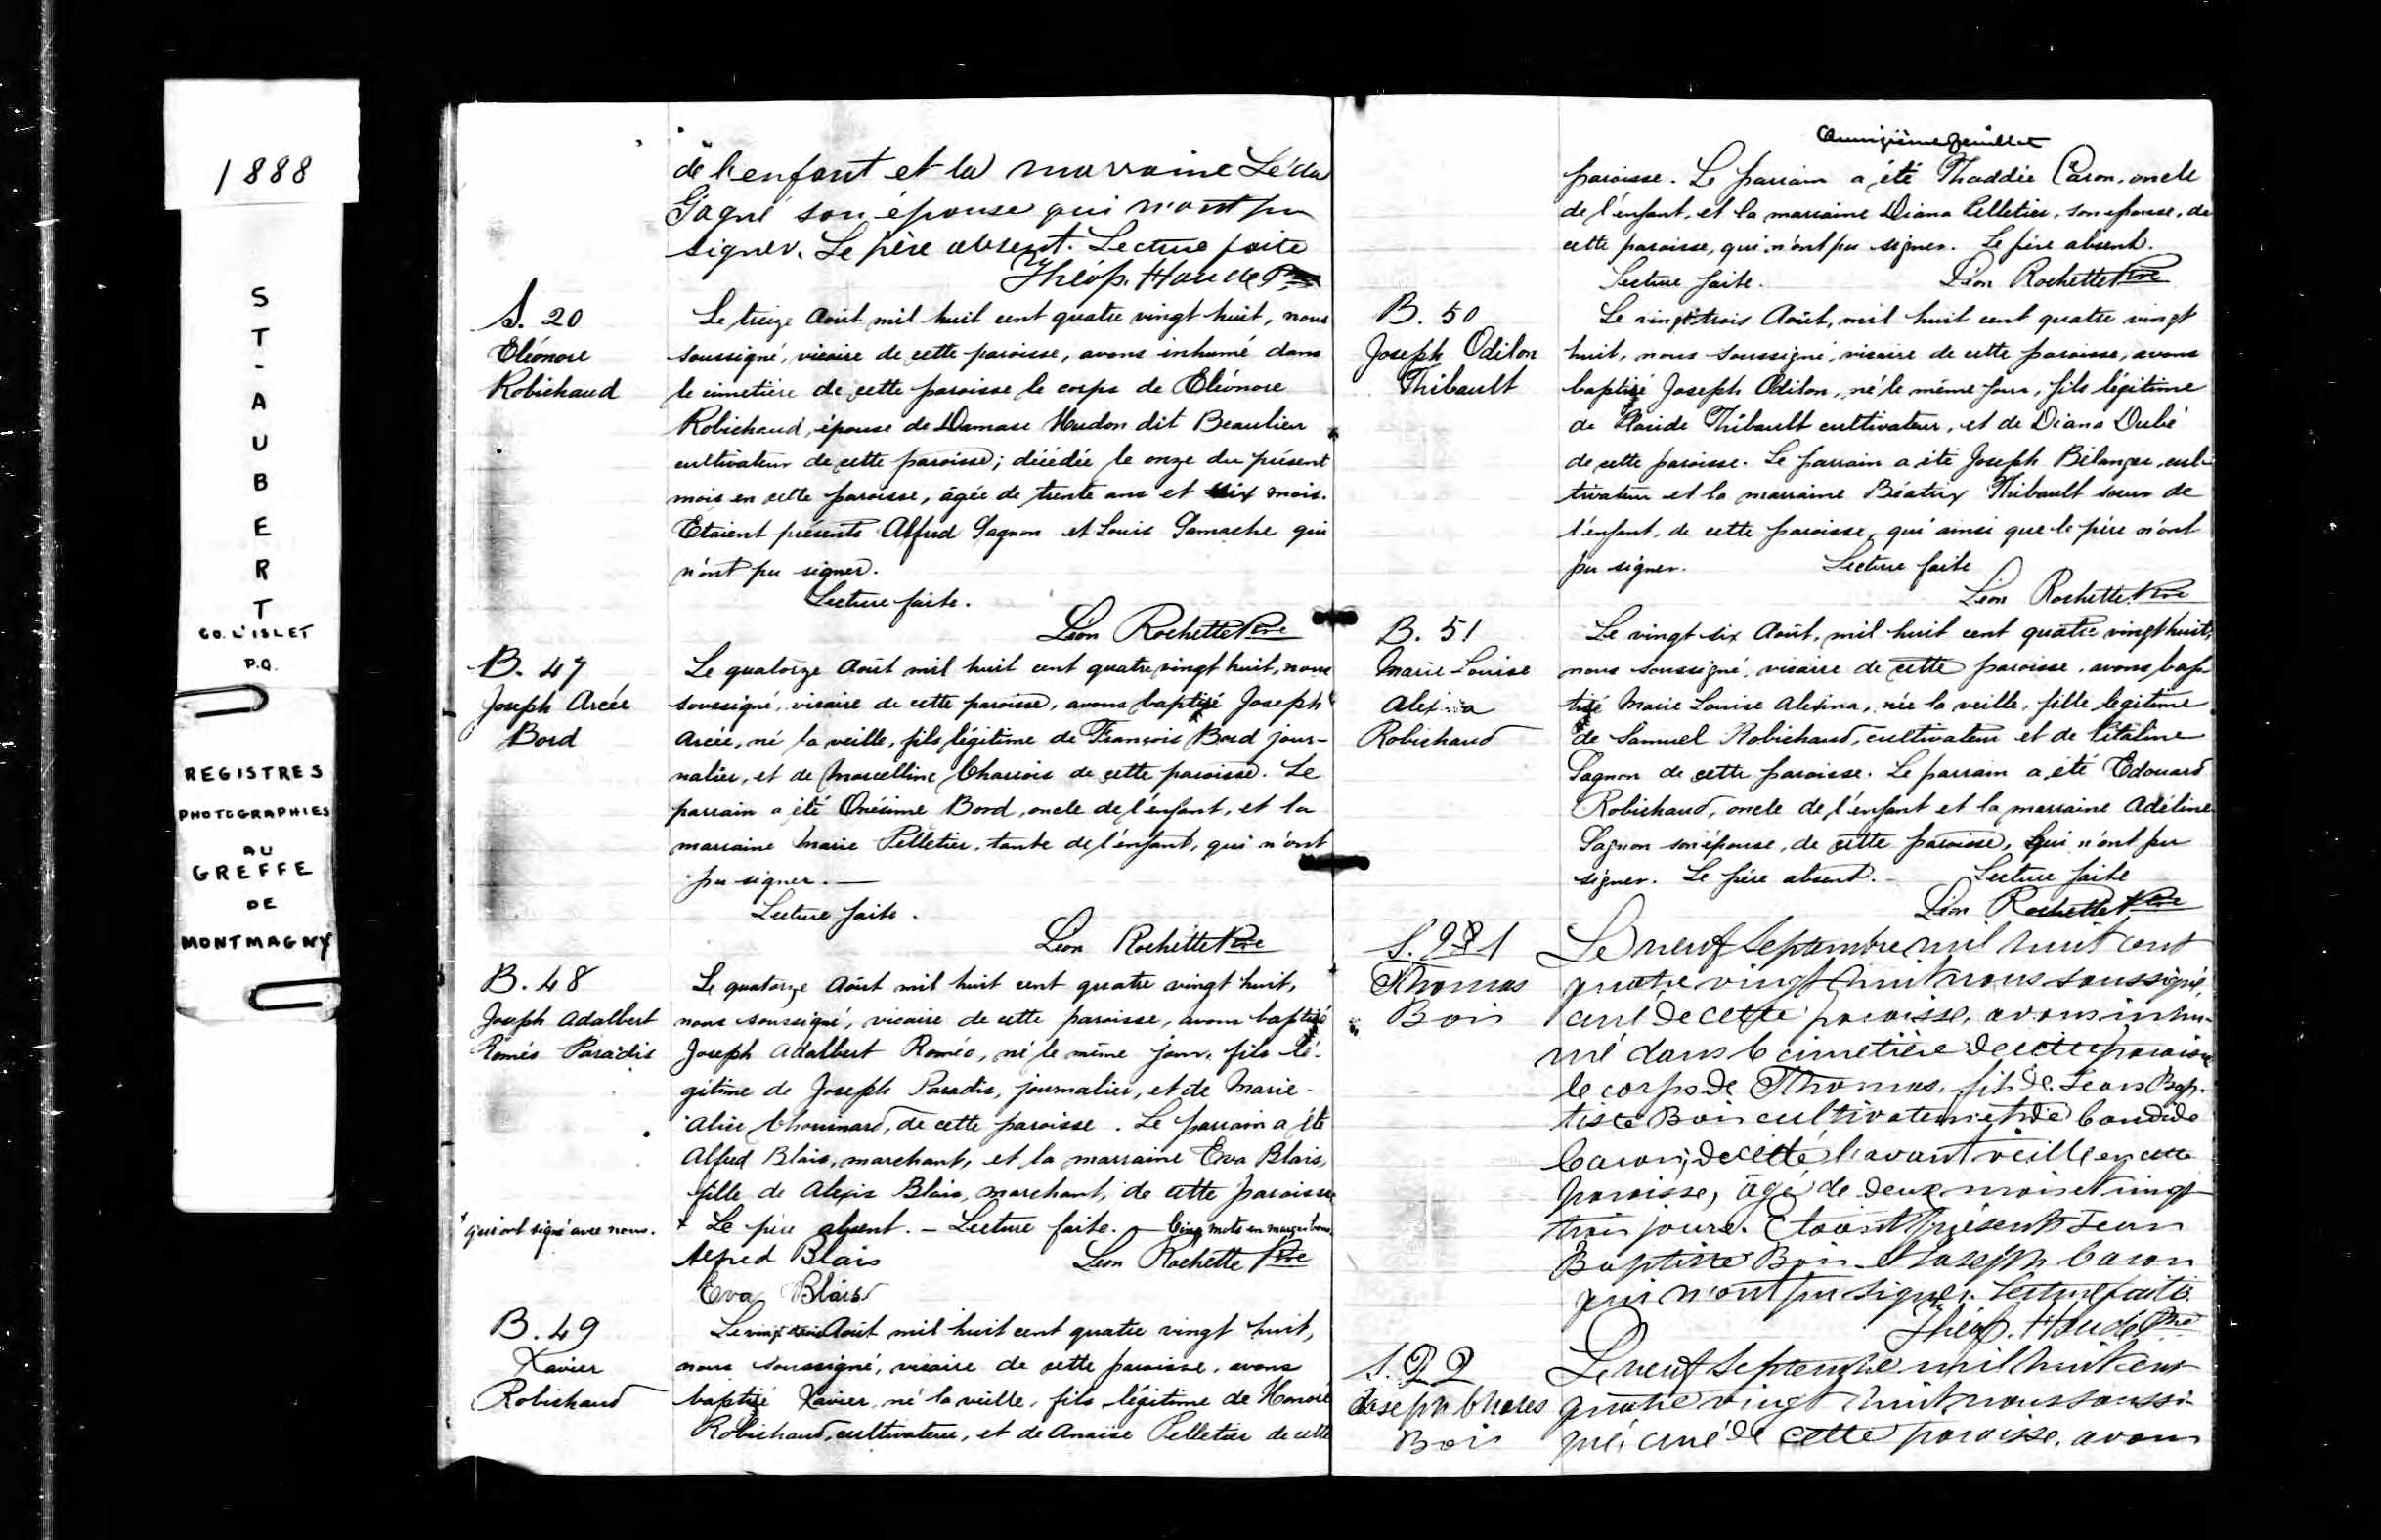 1888
S
T
-
A
U
B
E
R
T
CO. L'ISLET
P.Q.
REGISTRES
PHOTOGRAPHIES
AU
GREFFE
DE
MONTMAGNY
de l'enfant et la marraine Léda
Gagné son épouse qui n'ont pu
signer. Le père absent. Lecture faite
Théop. Houde Ptre
S. 20
Eléonore
Robichaud
Le treize Août mil huit cent quatre vingt huit, nous
soussigné, vicaire de cette paroisse, avons inhumé dans
le cimetière de cette paroisse le corps de Eléonore
Robichaud, épouse de Damase Hudon dit Beaulieu
cultivateur de cette paroisse; décédée le onze du présent
mois en cette paroisse, âgée de trente ans et six mois.
Etaient présents Alfred Gagnon et Louis Gamache qui
n'ont pu signer.
Lecture faite.
Léon Rochette Ptre
B. 47
Joseph Arcée
Bord
Le quatorze Août mil huit cent quatre vingt huit, nous
soussigné, vicaire de cette paroisse, avons baptisé Joseph
Arcée, né la veille, fils légitime de François Bord jour-
nalier, et de Marcelline Charrois de cette paroisse. Le
parrain a été Onésime Bord, oncle de l'enfant, et la
marraine Marie Pelletier, tante de l'enfant, qui n'ont
pu signer. —
Lecture faite.
Léon Rochette Ptre
B. 48
Joseph Adalbert
Roméo Paradis
Le quatorze Août mil huit cent quatre vingt huit,
nous soussigné, vicaire de cette paroisse, avons baptisé
Joseph Adalbert Roméo, né le même jour, fils lé-
gitime de Joseph Paradis, journalier, et de Marie-
Alice Chouinard, de cette paroisse. Le parrain a été
Alfred Blais, marchant, et la marraine Eva Blais,
fille de Alexis Blais, marchant, de cette paroisse
+ qui ont signé avec nous.
+ Le père absent. — Lecture faite. — Cinq mots en marge bons.
Alfred Blais
Léon Rochette Ptre
Eva Blais
B. 49
Xavier
Robichaud
Le vingt trois Août mil huit cent quatre vingt huit,
nous soussigné, vicaire de cette paroisse, avons
baptisé Xavier, né la veille, fils légitime de Honoré
Robichaud, cultivateur, et de Anaïse Pelletier de cette
feuillet
paroisse. Le parrain a été Thaddée Caron, oncle
de l'enfant, et la marraine Diana Pelletier, son épouse, de
cette paroisse, qui n'ont pu signer. Le père absent.
Lecture faite.
Léon Rochette Ptre
B. 50
Joseph Odilon
Thibault
Le vingt trois Août, mil huit cent quatre vingt
huit, nous soussigné, vicaire de cette paroisse, avons
baptisé Joseph Odilon, né le même jour, fils légitime
de Thibault cultivateur, et de Diana Dubé
de cette paroisse. Le parrain a été Joseph Bélanger, cul-
tivateur et la marraine Béatrix Thibault soeur de
l'enfant, de cette paroisse, qui ainsi que le père n'ont
pu signer. Lecture faite
Léon Rochette Ptre
B. 51
Marie Louise
Alexina
Robichaud
Le vingt-six Août, mil huit cent quatre vingt huit,
nous soussigné, vicaire de cette paroisse, avons bap-
tisé Marie Louise Alexina, née la veille, fille légitime
de Samuel Robichaud, cultivateur et de
Gagnon de cette paroisse. Le parrain a été Edouard
Robichaud, oncle de l'enfant et la marraine Adéline
Gagnon son épouse, de cette paroisse, qui n'ont pu
signer. Le père absent. — Lecture faite
Léon Rochette Ptre
S. 21
Thomas
Bois
Le neuf Septembre mil huit cent
quatre vingt huit nous soussigné,
curé de cette paroisse, avons inhu-
mé dans le cimetière de cette paroisse
le corps de Thomas, fils de Jean Bap-
tiste Bois cultivateur et de Candide
Caron; décédé l'avant veille en cette
paroisse, âgé de deux mois et vingt
trois jours. Etaient présents Jean
Baptiste Bois et Joseph Caron
qui n'ont pu signer. Lecture faite.
Théop. Houde Ptre
S. 22
Joseph Charles
Bois
Le neuf Septembre mil huit cent
quatre vingt huit, nous soussi-
gné, curé de cette paroisse, avons